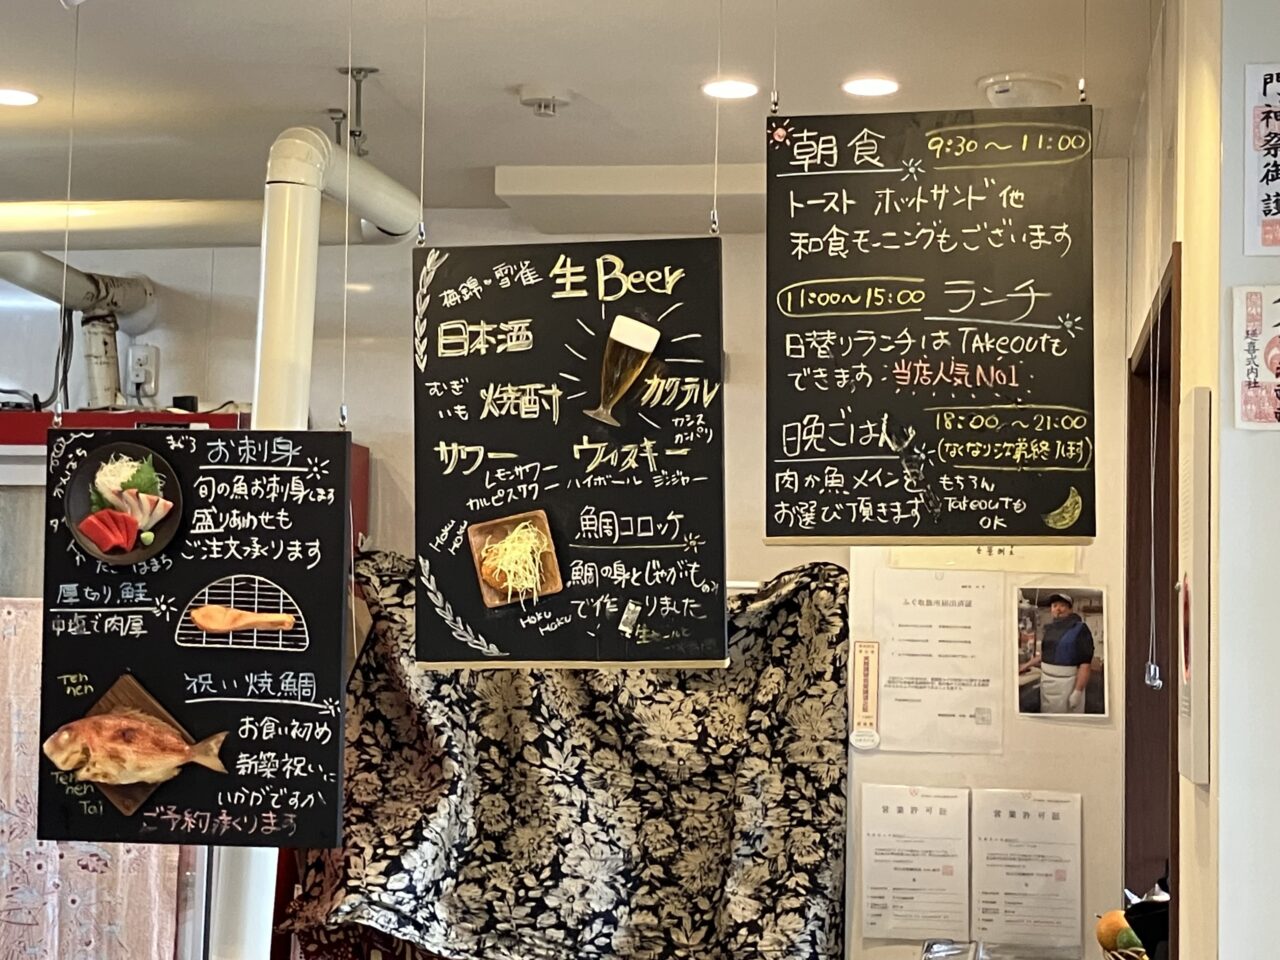 まぐろ
お刺身
かんぱち
旬の魚お刺身します
盛りあわせも
ご注文承ります
はまち
厚切り鮭
中塩で肉厚
Ten
nen
祝い焼鯛
お食い初め
新築祝いに
いかがですか
Ten
nen
Tai
ご予約承ります
梅錦・雪雀 生Beer
日本酒
むぎ
いも
焼酎
カクテル
カシス
カンパリ
サワー
レモンサワー
カルピスサワー
ウィスキー
ハイボール ジンジャー
Hoku
Hoku
鯛コロッケ
鯛の身とじゃがいも
で作りました
Hoku
Hoku
朝食 9:30～11:00
トースト ホットサンド 他
和食モーニングもございます
11:00～15:00 ランチ
日替りランチは TAKEOUTも
できます 当店人気No1
晩ごはん 18:00～21:00
(なくなり次第終了します)
肉か魚メインを
お選び頂きます
もちろん
Takeoutも
OK
門神祭御護
延喜式内社
ふぐ取扱所届出済証
営業許可証
営業許可証